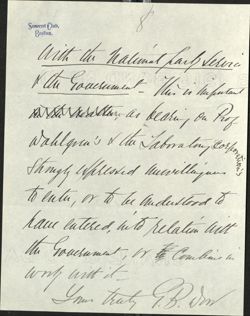 8
Somerset Club,
Boston.
With the National Park Service
& the Government - This is important
as bearing on Prof
Dahlgren's & the Laboratory Corporation's
strongly expressed unwillingness
to enter, or to be understood to
have entered, into relation with
the Government, or to combine in
work with it.
Yours truly G. B. Dorr